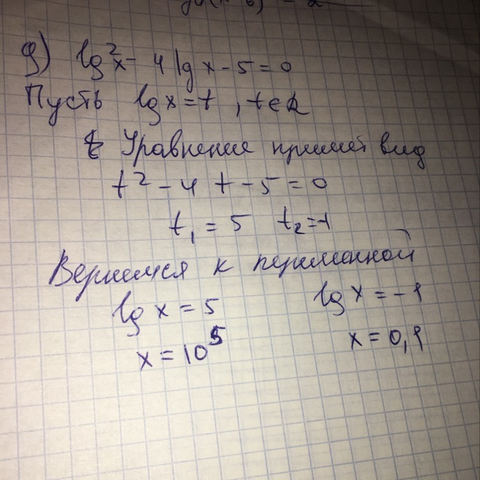 g) lg²x - 4 lg x - 5 = 0
Пусть lg x = t , t ∈ R
Уравнение примет вид
t² - 4 t - 5 = 0
t₁ = 5 t₂ = -1
Вернимся к переменной
lg x = 5 lg x = -1
x = 10⁵ x = 0,1